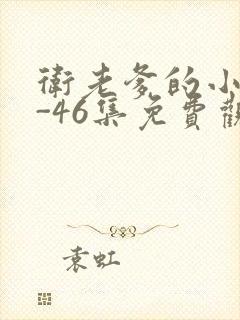 衛老爹的小
-46集免費觀
袁虹